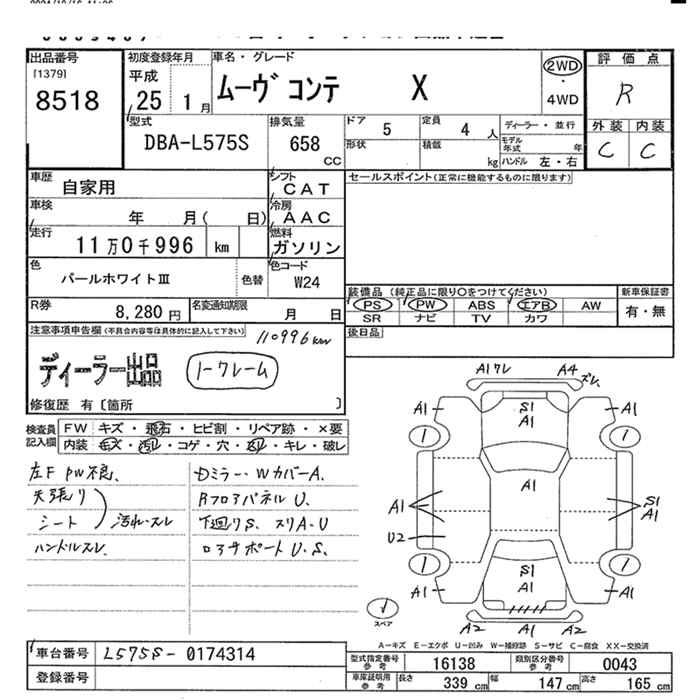 出品番号
[1379]
8518
初度登録年月
平成
25 1 月
車名・グレード
ムーヴ コンテ X
2WD
・
4WD
評価点
R
外装 内装
C C
型式
DBA-L575S
排気量
658
CC
ドア 5
定員 4 人
ディーラー・並行
形状
積載 kg
モデル年式 年
ハンドル 左・右
車歴
自家用
シフト
CAT
セールスポイント(正常に機能するものに限ります)
車検
年 月( 日)
冷房
AAC
走行
11万0千996 km
燃料
ガソリン
色
パールホワイトⅢ
色替
色コード
W24
装備品 (純正品に限り○をつけてください)
PS PW ABS エアB AW
SR ナビ TV カワ
新車保証書
有・無
R券
8,280 円
名変通知期限
月 日
後日品
注意事項申告欄(不具合内容等は具体的に記入して下さい)
110996km
ディーラー出品
1-クレーム
修復歴 有〔箇所 〕
検査員記入欄
FW キズ・飛石・ヒビ割・リペア跡・×要
内装 キズ・汚れ・コゲ・穴・スリ・キレ・破レ
左F PW不良、
天張り
シート
汚れ・スレ
ハンドルスレ、
Dミラー・WカバーA.
RフロアパネルU.
下廻りS. スリA・U
ロアサポートU.S.
A1 ワレ A4 ズレ
A1 S1 A1 A1
1 1
A1 A1 S1 A1
U2
1 S1 A1 1
A1 A1
A2 A2
スペア
A-キズ E-エクボ U-凹み W-補修跡 S-サビ C-腐食 XX-交換済
車台番号
L575S-0174314
登録番号
型式指定番号参考 16138
類別区分番号参考 0043
車庫証明用参考
長さ 339 cm 幅 147 cm 高さ 165 cm